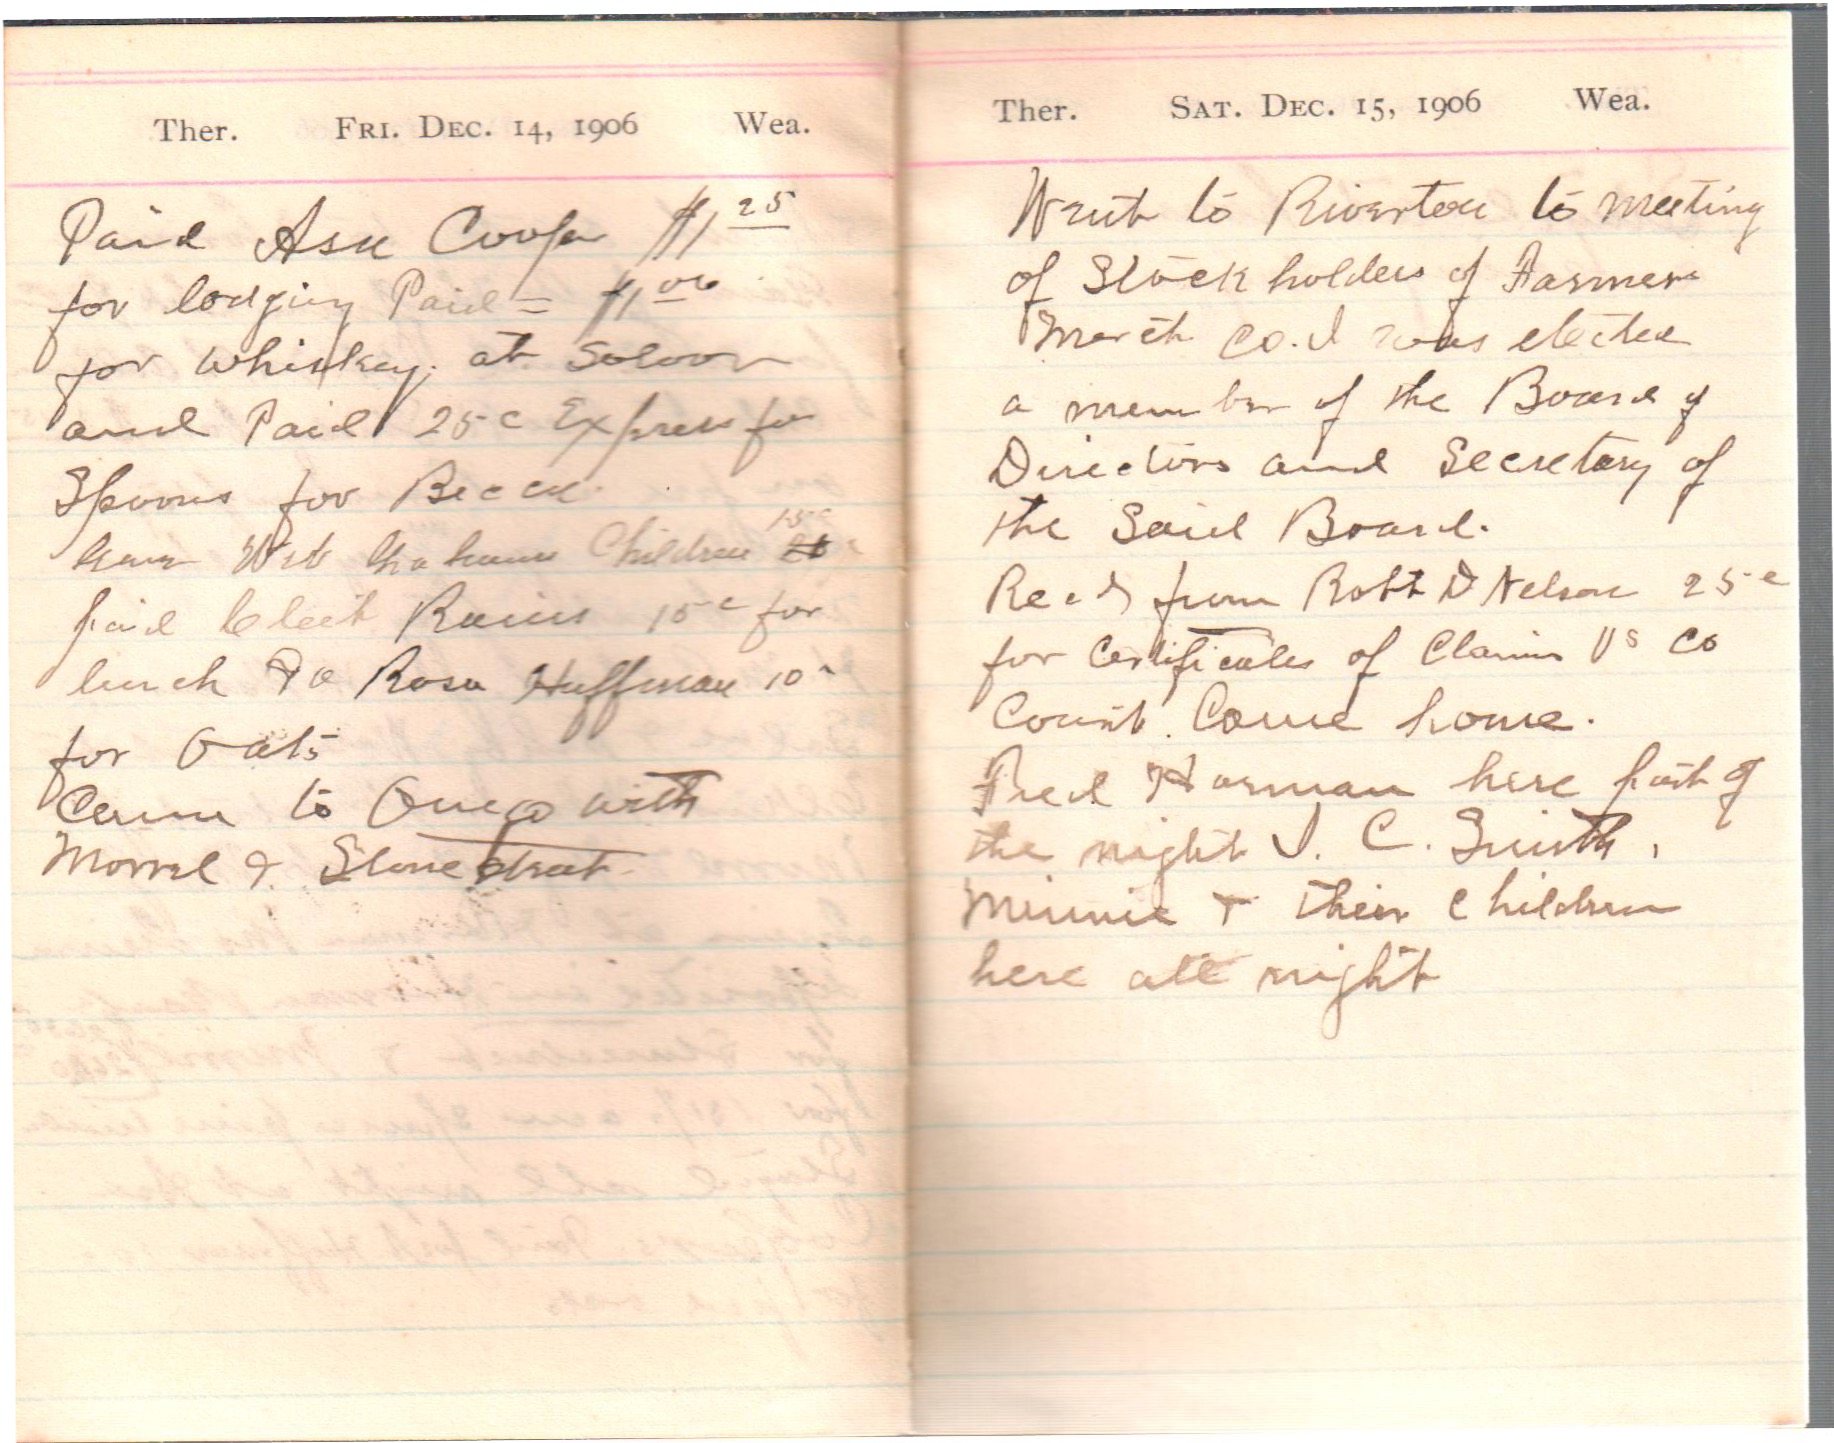 Ther. FRI. DEC. 14, 1906 Wea.
Paid Asa Cooper $1 25
for lodging Paid = $1 00
for whiskey. at Soloon
and Paid 25c Express for
Spoons for Becca.
Gave Web Grahams Children 15c
paid 15c for
lunch To Rosa Huffman 10c
for Oats
Came to Onego with
Morral & Stonestreet
Ther. SAT. DEC. 15, 1906 Wea.
Went to Riverton to meeting
of Stock holders of Farmers
March Co. I was elected
a member of the Board of
Directors and Secretary of
the Said Board.
Recd from Robt D Nelson 25c
for Certificates of Claim Vs Co
Court. Came home.
Fred Harman here part of
the night J. C. Smith,
Minnie + their Children
here all night